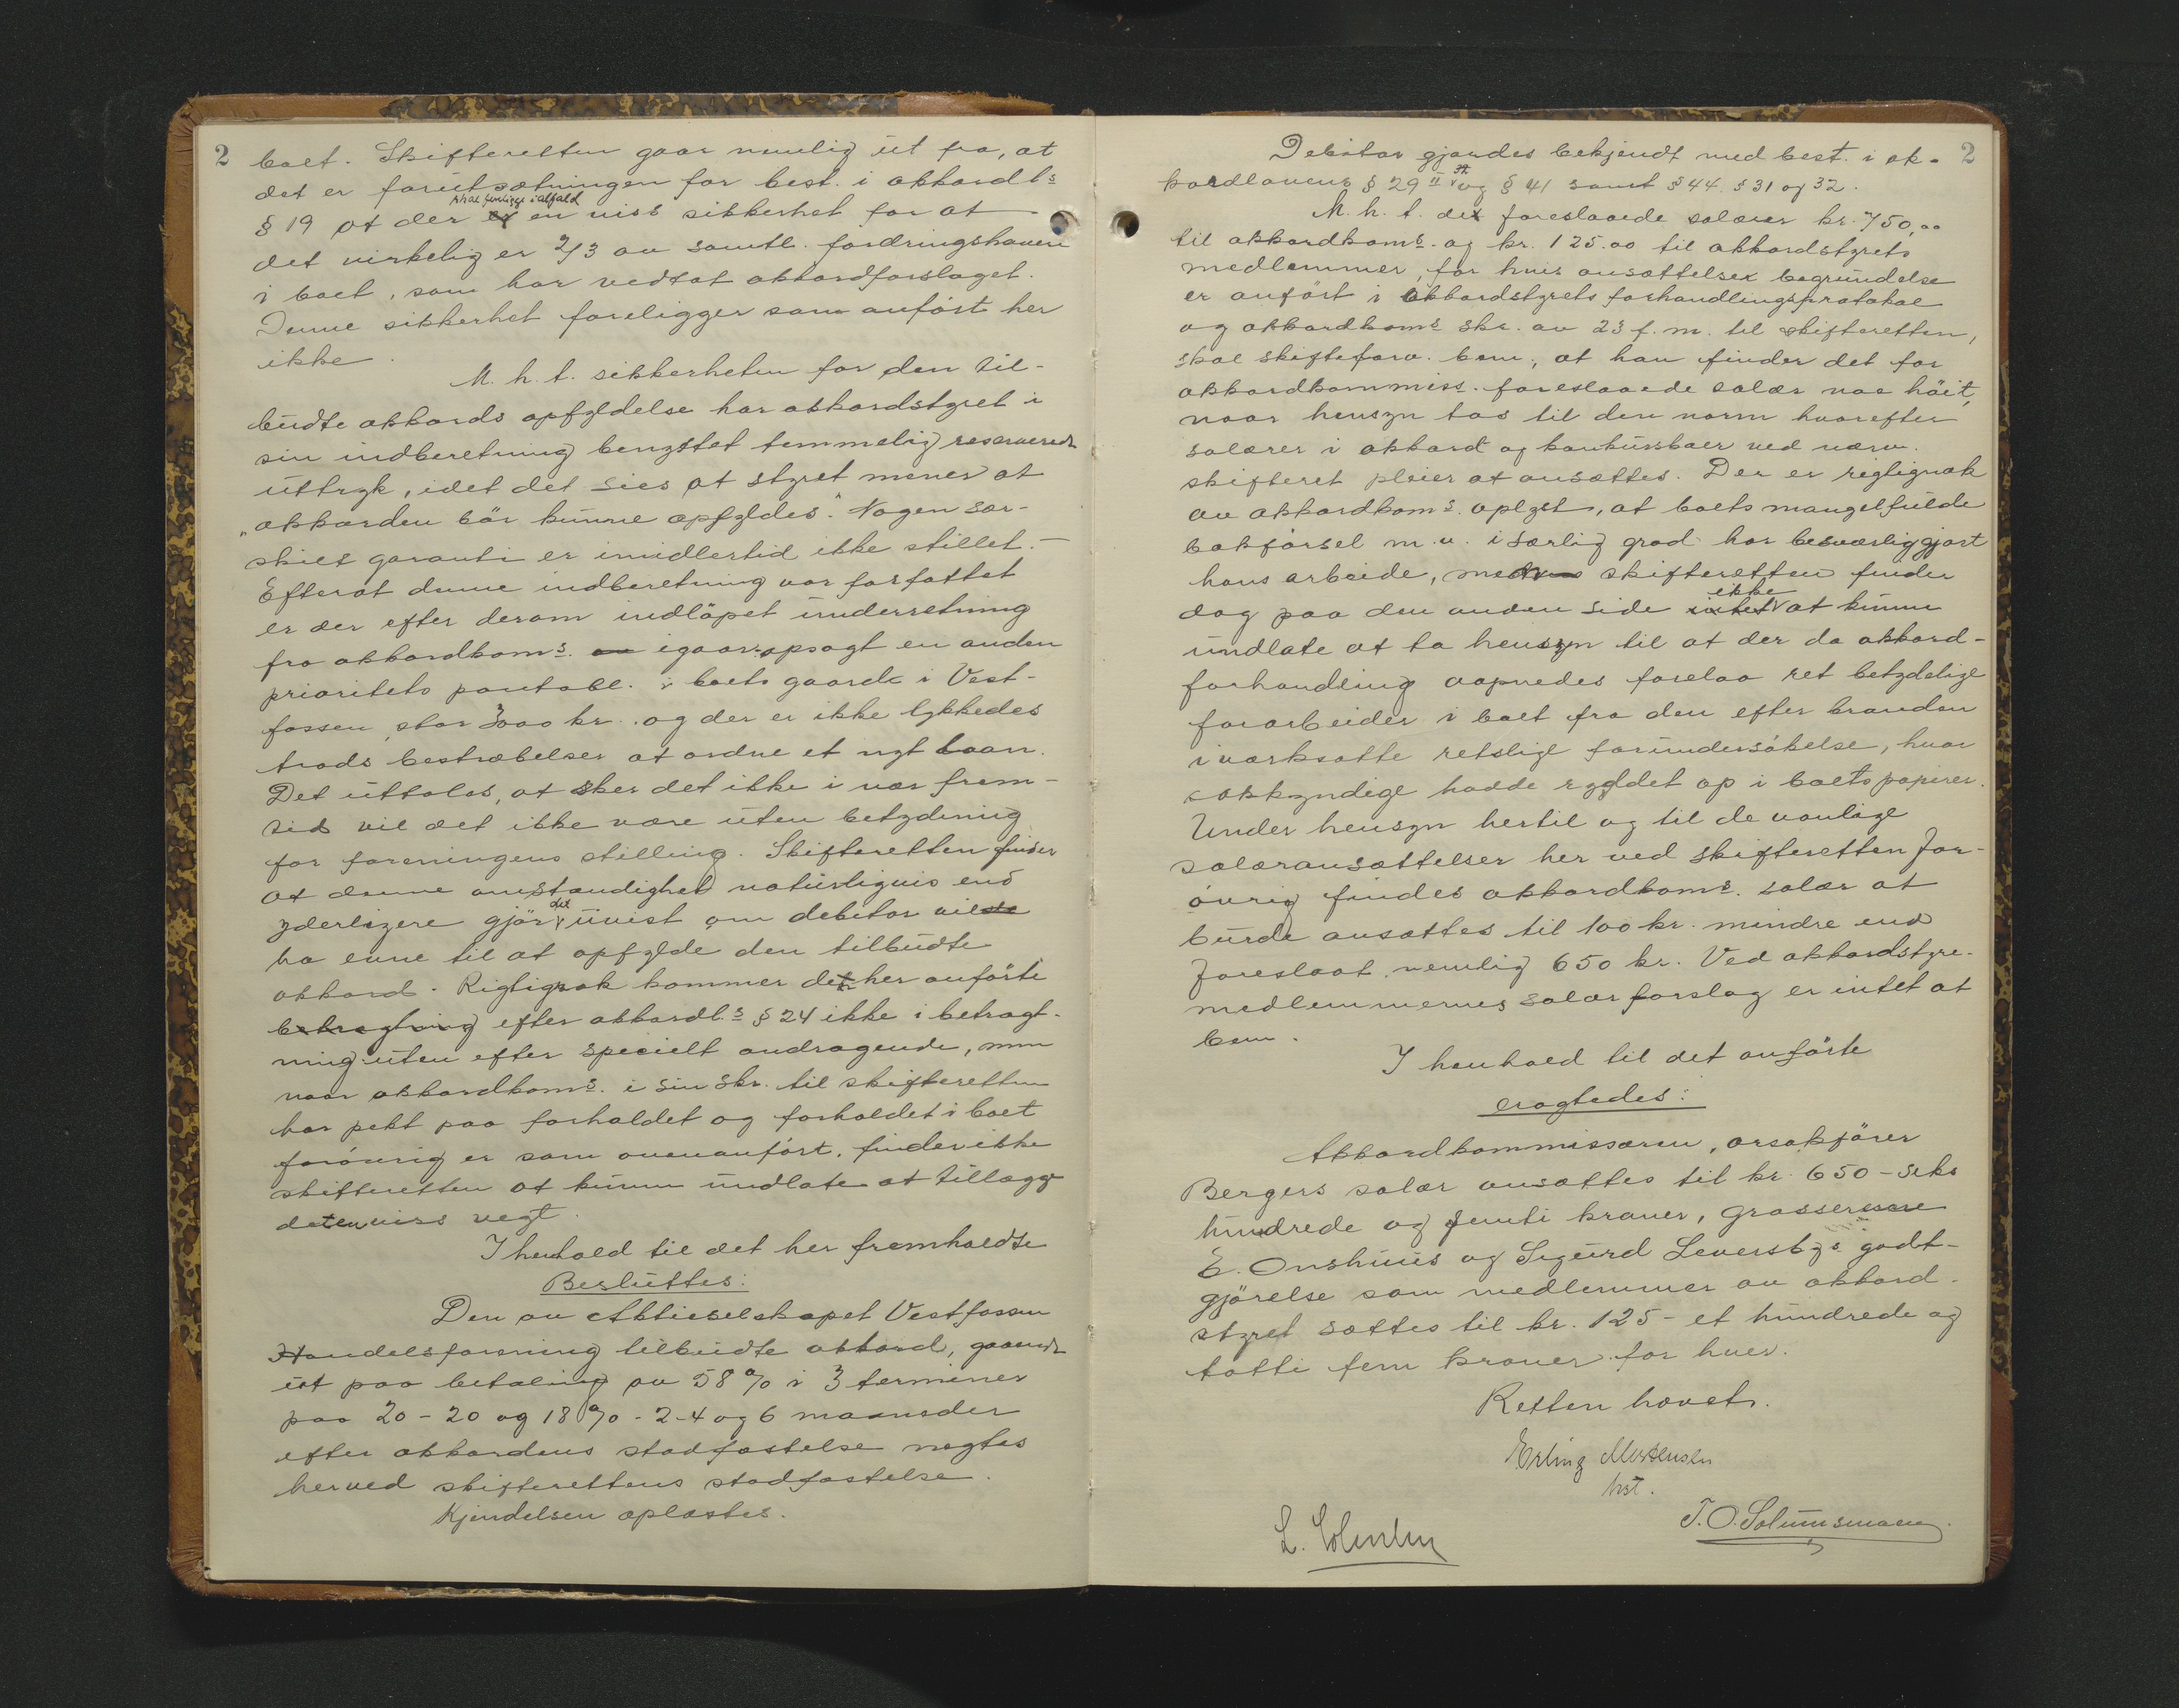 2
boet. Skifteretten gaar nemlig ut fra, at
det er forutsætningen for best. i akkordl.s
skal foreligge ialfald
§ 19 at der en viss sikkerhet for at
det virkelig er 2/3 av samtl. fordringshavere
i boet, som har vedtat akkordforslaget.
Denne sikkerhet foreligger som anført her
ikke.
M. h. t. sikkerheten for den til-
budte akkords opfyldelse har akkordstyret i
sin indberetning benyttet temmelig reserverede
uttryk, idet det sies at styret mener at
"akkorden bör kunne opfyldes". Nogen sær-
skilt garanti er imidlertid ikke stillet.-
Efterat denne indberetning var forfattet
er der efter derom indlöpet underretning
fra akkordkoms. igaar opsagt en anden
prioritets pantobl. i boets gaard i Vest-
fossen, stor 3000 kr. og der er ikke lykkedes
trods bestræbelser at ordne et nyt laan.
Det uttales, at sker det ikke i nær frem-
tid vil det ikke være uten betydning
for foreningens stilling. Skifteretten finder
at denne omstændighet naturligvis end
yderligere gjör det uvist om debitor vil
ha evne til at opfylde den tilbudte
akkord. Rigtignok kommer det her anförte
betragtning efter akkordl.s § 24 ikke i betragt-
ning uten efter specielt andragende, men
naar akkordkoms. i sin skr. til skifteretten
har pekt paa forholdet og forholdet i boet
forövrig er som ovenanfört, finder ikke
skifteretten at kunne undlate at tillægge
det en viss vegt.
I henhold til det her fremholdte
Besluttes:
Den av Aktieselskapet Vestfossen
Handelsforening tilbudte akkord, gaaende
ut paa betaling av 58 % i 3 terminer
paa 20 - 20 og 18 % - 2-4 og 6 maaneder
efter akkordens stadfæstelse negtes
herved skifterettens stadfæstelse.
Kjendelsen oplæstes.
2
Debitor gjordes bekjendt med best. i ak-
kordlovens § 29 II og § 41 samt § 44 § 31 og 32.
M. h. t. de foreslaaede salærer kr. 750,00
til akkordkoms. og kr. 125.00 til akkordstyrets
medlemmer, for hvis ansættelses begrundelse
er anfört i akkordstyrets forhandlingsprotokol
og akkordkoms skr. av 23 f. m. til skifteretten,
skal skifteforv. bem., at han finder det for
akkordkommiss. foreslaaede salær noe höit,
naar hensyn tas til den norm hvorefter
salærer i akkord og konkursboer ved nærv.
skifteret pleier at ansættes. Der er rigtignok
av akkordkoms. oplyst, at boets mangelfulde
bokförsel m.v. i særlig grad har besværliggjort
hans arbeide, men skifteretten finder
dog paa den anden side ikke at kunne
undlate at ta hensyn til at der da akkord-
forhandling aapnedes forelaa ret betydelige
forarbeider i boet fra den efter branden
iverksatte retslige forundersökelse, hvor
sakkyndige hadde ryddet op i boets papirer.
Under hensyn hertil og til de vanlige
salæransættelser her ved skifteretten for-
övrig findes akkordkoms. salær at
burde ansættes til 100 kr. mindre end
foreslaat, nemlig 650 kr. Ved akkordstyre-
medlemmernes salær forslag er intet at
bem.
I henhold til det anförte
eragtedes:
Akkordkommissæren, orsakförer
Bergers salær ansættes til kr. 650 - seks
hundrede og femti kroner, grosserere
E. Onshuus og Sigurd Leversbys godt-
gjörelse som medlemmer av akkord-
styret sættes til kr. 125 - et hundrede og
totti fem kroner for hver.
Retten hævet.
Erling Mortensen
kst.
T. O. Solumsmoen